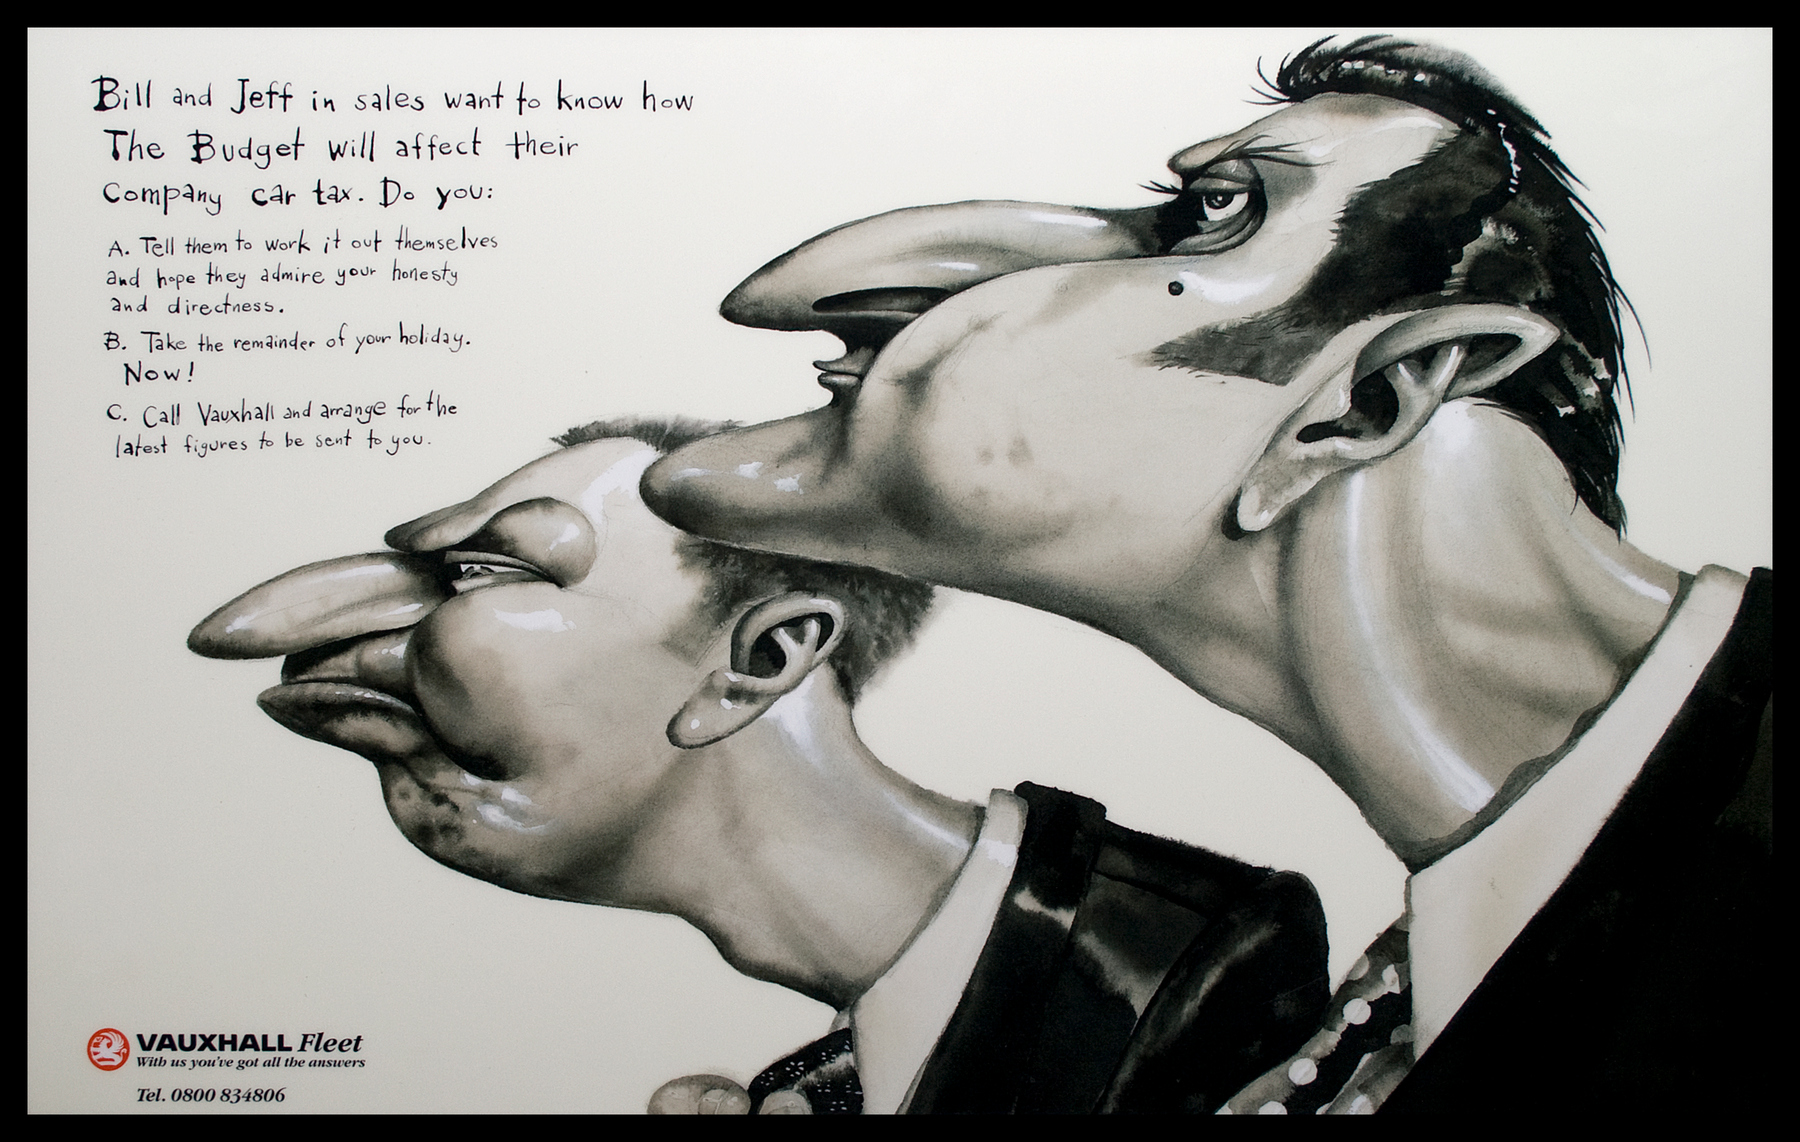 Bill and Jeff in sales want to know how
The Budget will affect their
Company car tax. Do you:
A. Tell them to work it out themselves
and hope they admire your honesty
and directness.
B. Take the remainder of your holiday.
Now!
C. Call Vauxhall and arrange for the
latest figures to be sent to you.
VAUXHALL Fleet
With us you've got all the answers
Tel. 0800 834806